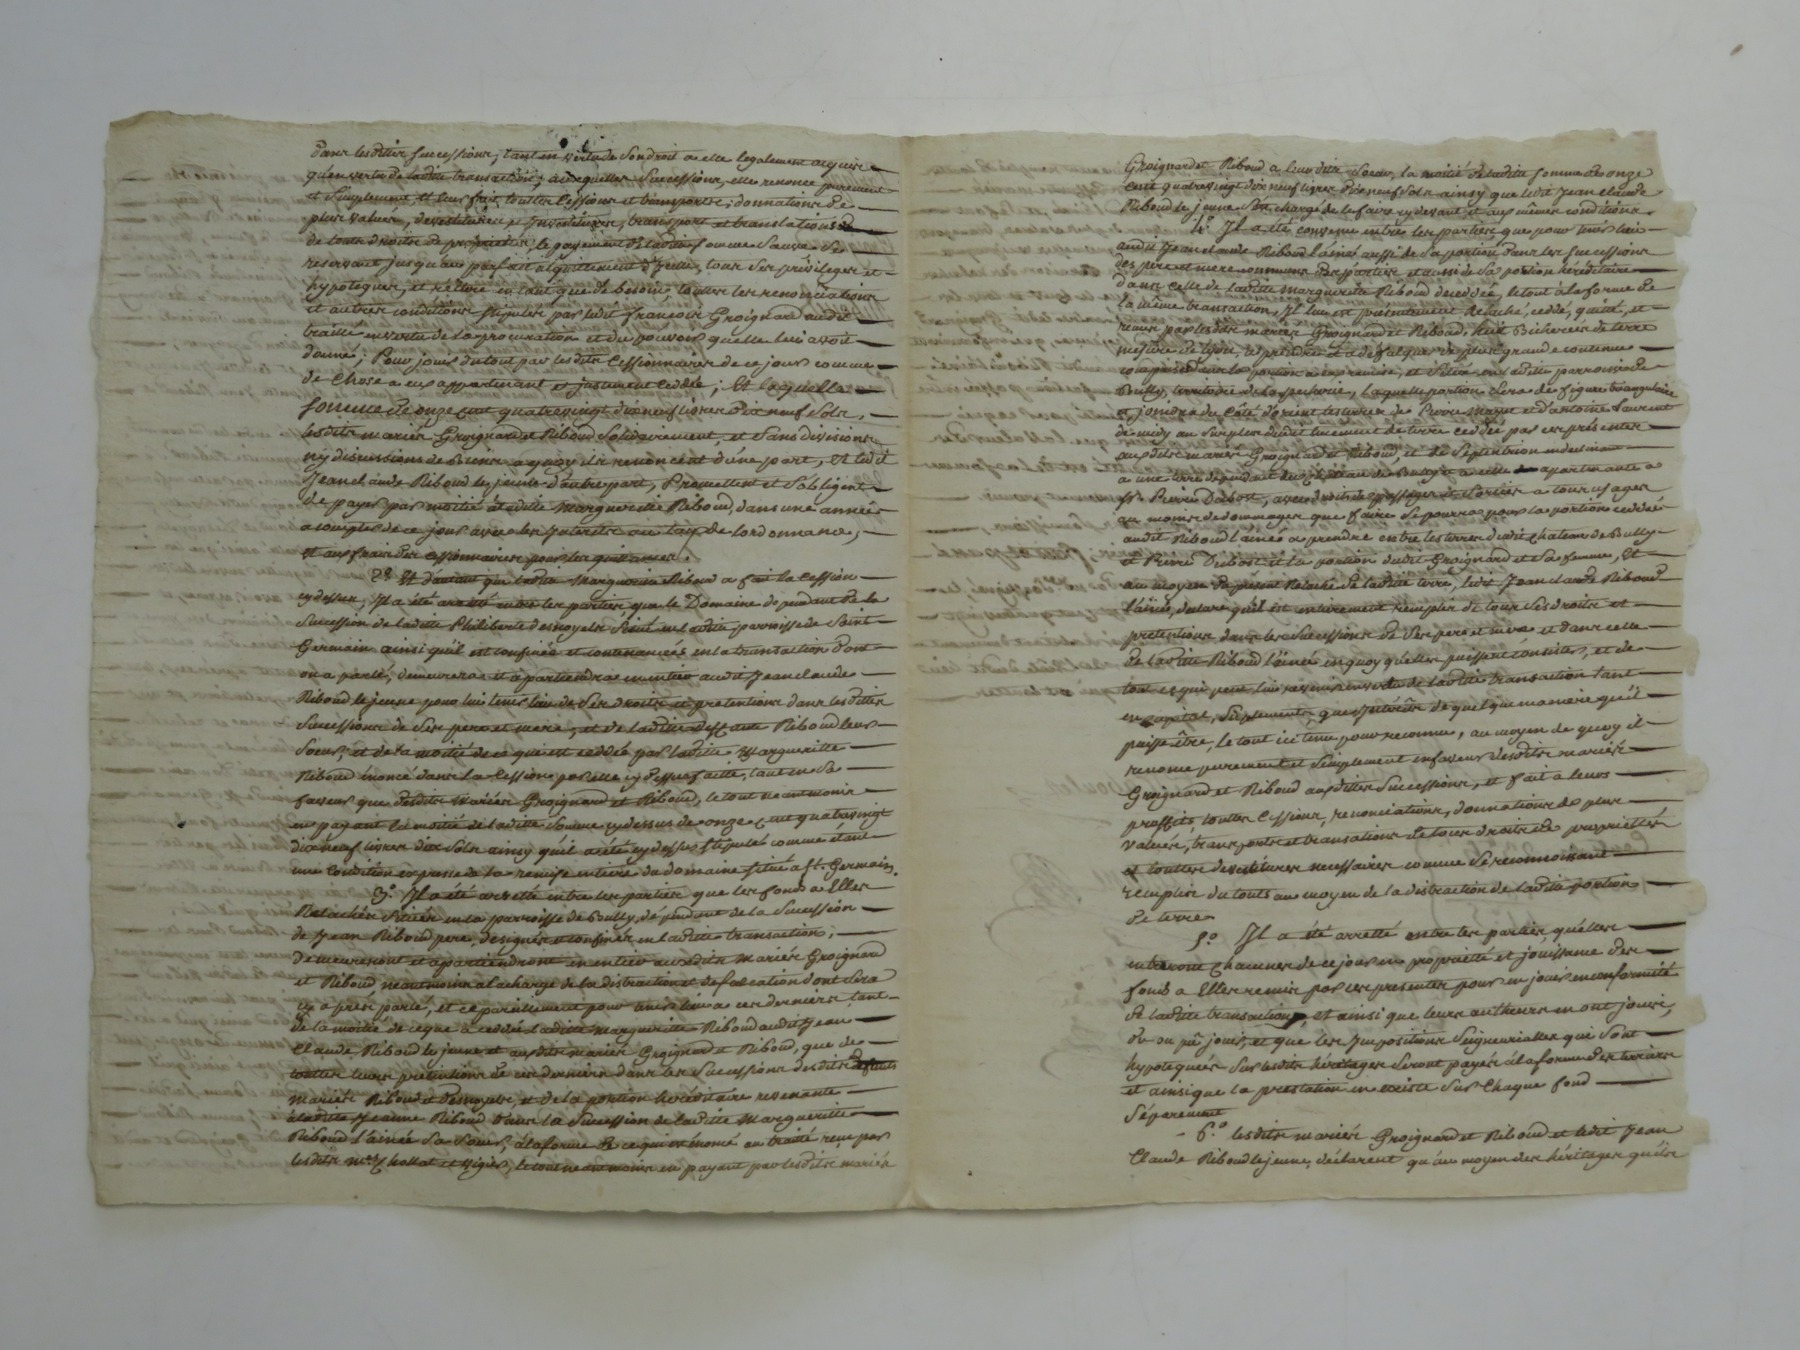 dans lesdittes successions, tant en vertu de son droit a elle legalement acquis
qu'en vertu de laditte transaction; auxquelles successions, elle renonce purement
et simplement et leur fait touttes cessions et transports, donnations de
plus values, devestitures, investitures, transport et translations
de touts droits de proprietés, le payement de laditte somme sauve se
reservant jusqu'au parfait aquittement d'icelle, tous ses privileges et
hypoteques, et réitère en tant que de besoin, touttes les renonciations
et autres conditions stipulées par ledit françois Groignard audit
traitté en vertu de la procuration et du pouvoir quelle luis avoit
donné; Pour jouir du tout par lesdits Cessionnaires de ce jour comme
de Chose a eux appartenant et justement ceddée; Et laquelle
somme de onze cent quatrevingt dix neuf livres dix neuf sols,
lesdits mariés Groignard et Riboud solidairement et sans divisions
ny discussions de Biens a quoy ils renoncent d'une part, et ledit
Jean claude Riboud le jeune d'autre part, Promettent et s'obligent
de payer par moitié a laditte Margueritte Riboud, dans une année
a compter de ce jour avec les Interets au taux de lordonnance,
et aux frais des cessionnaires pour les quittances.
2.° Et d'autant que laditte Margueritte Riboud a fait la Cession
cy dessus, Il a été arretté entre les parties que le Domaine dependant de la
succession de laditte Philiberte desnoyels situé en laditte parroisse de Saint
Germain ainsi qu'il est confinés et contenancés en la transaction dont
on a parlé, demeurera et apartiendra en entier audit Jean claude
Riboud le jeune pour lui tenir lieu de ses droits et pretentions dans lesdittes
successions de ses pere et mere, et de laditte deffunte Riboud leur
soeur, et de la moitié de ce qui est ceddée par laditte Margueritte
Riboud énoncé dans la Cession par elle cy dessus faitte, tant en sa
faveur que desdits Mariés Groignard et Riboud, le tout neantmoins
en payant la moitié de laditte somme cy dessus de onze cent quatrevingt
dix neuf livres dix sols ainsy qu'il a été cy dessus stipulés comme étant
une Condition expresse de la remise entiere du domaine situé a St. Germain.
3.° Il a été arretté entre les parties que les fonds a Elles
Relachés situés en la parroisse de Bully, dépendant de la succession
de Jean Riboud pere, designés et confinés en laditte transaction,
demeureront et apartiendront en entier auxdits mariés Groignard
et Riboud neantmoins a la charge de la distraction et defalcation dont sera
cy apres parlé, et ce pareillement pour tenir lieu a ces derniers tant
de la moitié de ce que a ceddée laditte Margueritte Riboud audit Jean
Claude Riboud le jeune et auxdits mariés Groignard et Riboud, que de
touttes leurs pretentions de ces derniers dans les successions desdits deffunts
mariés Riboud et Desnoyels, et de la portion hereditaire revenante
a laditte Jeanne Riboud dans la succession de laditte Margueritte
Riboud l'ainée sa soeur, a la forme de ce qui est énoncé au traitté reçu par
lesdits Mes Chollat et Vigier, le tout neantmoins en payant par lesdits mariés
Groignard et Riboud a leurditte soeur, la moitié de laditte somme de onze
cent quatrevingt dix neuf livres dix neuf sols ainsy que ledit Jean claude
Riboud le jeune s'est chargé de le faire cy devant et aux mêmes conditions.
4.° Il a été convenu entre les parties que pour tenir lieu
audit Jean claude Riboud l'ainé aussi de sa portion dans les successions
des pere et mere communs des parties et aussi de sa portion héréditaire
dans celle de laditte Margueritte Riboud deceddée, le tout a la forme de
la même transaction, Il lui est presentement Relaché, ceddé, quitté, et
remis par lesdits mariés Groignard et Riboud, huit Bicherées de terre
mesure de Lyon, a prendre et a defalquer de plus grande contenue
comprise dans la portion a eux remise, et située en laditte parroisse de
Bully, territoire de la pecherie, laquelle portion sera de figure triangulaire
et joindra du Coté d'orient les terres de Pierre Mazet et d'antoine Laurent
de midy au surplus dudit tenement de terre ceddé par ces presentes
auxdits mariés Groignard et Riboud, et de septentrion en declinant
a une terre dependant du château de Bully et a celle apartenante a
sr. Pierre Dubost, avec droits de passages et sorties a tous usages
au moins de dommages que faire se pourra pour la portion ceddée
audit Riboud l'ainé a prendre entre les terres dudit château de Bully
et Pierre Dubost et la portion dudit Groignard et sa femme, Et
au moyen du present Relaché de laditte terre, ledit Jean claude Riboud
l'ainé, declare qu'il est entierement remplis de tous ses droits et
pretentions dans les successions de ses pere et mere et dans celle
de laditte Riboud l'ainée en quoy qu'elles puissent consister, et de
tout ce qui peut lui revenir en vertu de laditte transaction tant
en capital, suplements, que Interets de quelque maniere qu'il
puisse être, le tout ici tenu pour reconnu, au moyen de quoy il
renonce purement et simplement en faveur desdits mariés
Groignard et Riboud auxdittes successions, et fait a leurs
proffits, touttes cessions, renonciations, donnations de plus
values, transports et translations de tous droits de proprietés
et touttes devestitures necessaires comme se reconnoissant
remplis du touts au moyen de la distraction de laditte portion
de terre.
5.° Il a été arretté entre les parties, quelles
entreront chacunes de ce jour en propriété et jouissance des
fonds a Elles remis par ces presentes pour en jouir en conformité
de laditte transaction, et ainsi que leurs autheurs en ont jouis,
ou ont pû jouir, et que les Impositions seigneurialles qui sont
hypotequées sur lesdits héritages seront payés a la forme des terriers
et ainsi que la prestation en existe sur chaque fond
séparement
6.° lesdits mariés Groignard et Riboud et ledit Jean
Claude Riboud le jeune, déclarent qu'au moyen des héritages qu'ils